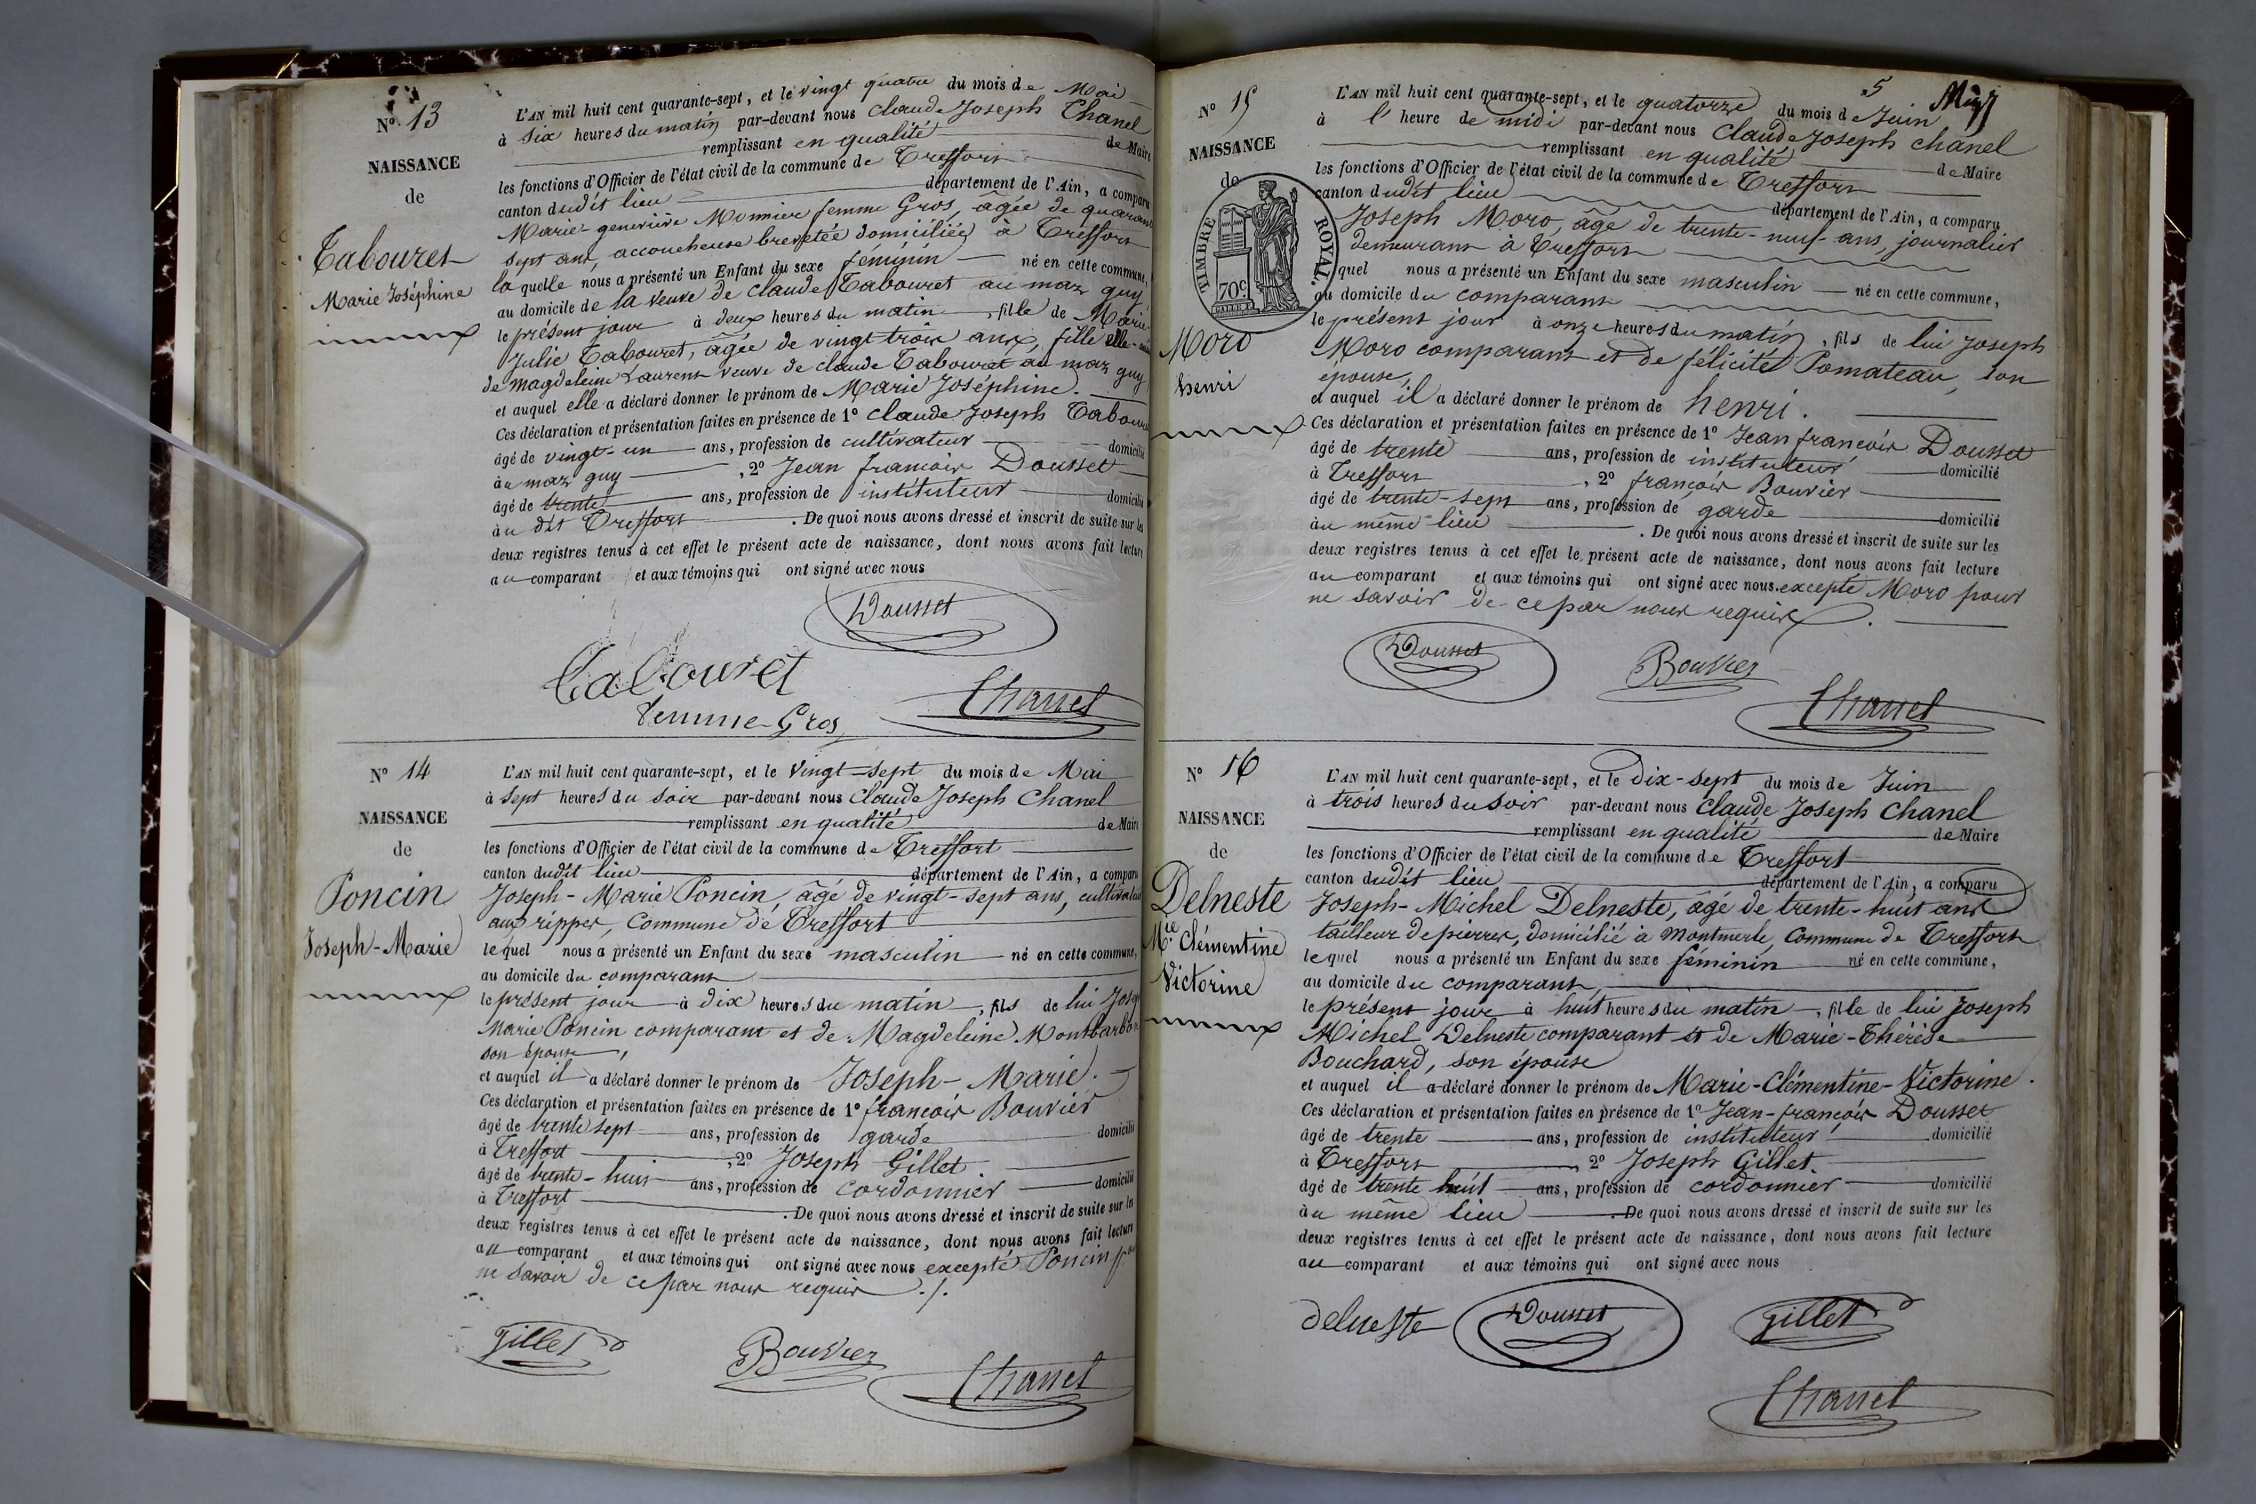 Nº 13
NAISSANCE
de
Tabouret
Marie Joséphine
L'AN mil huit cent quarante-sept, et le vingt quatre du mois de Mai
à six heures du matin par-devant nous Claude Joseph Chanel
remplissant en qualité de Maire
les fonctions d'Officier de l'état civil de la commune de Treffort
canton dudit lieu département de l'Ain, a comparu
Marie-geneviève Monnier femme Gros, âgée de quarante
sept ans, accoucheuse brevetée domiciliée à Treffort
laquelle nous a présenté un Enfant du sexe féminin né en cette commune,
au domicile de la veuve de Claude Tabouret au maz guy
le présent jour à deux heures du matin, fille de Marie
Julie Tabouret, âgée de vingt trois ans, fille elle-même
de Magdeleine Laurent veuve de claude Tabouret au maz guy
et auquel elle a déclaré donner le prénom de Marie Joséphine.
Ces déclaration et présentation faites en présence de 1º Claude Joseph Tabouret
âgé de vingt-un ans, profession de cultivateur domicilié
au maz guy, 2º Jean françois Dousset
âgé de trente ans, profession de instituteur domicilié
au dit Treffort. De quoi nous avons dressé et inscrit de suite sur les
deux registres tenus à cet effet le présent acte de naissance, dont nous avons fait lecture
au comparant et aux témoins qui ont signé avec nous
Dousset
Tabouret
femme Gros
Chanel
Nº 14
NAISSANCE
de
Poncin
Joseph-Marie
L'AN mil huit cent quarante-sept, et le vingt-sept du mois de Mai
à sept heures du soir par-devant nous Claude Joseph Chanel
remplissant en qualité de Maire
les fonctions d'Officier de l'état civil de la commune de Treffort
canton dudit lieu département de l'Ain, a comparu
Joseph-Marie Poncin, âgé de vingt-sept ans, cultivateur
aux ripper, Commune de Treffort
lequel nous a présenté un Enfant du sexe masculin né en cette commune,
au domicile du comparant
le présent jour à dix heures du matin, fils de lui Joseph
Marie Poncin comparant et de Magdeleine Montbarbon
son épouse,
et auquel il a déclaré donner le prénom de Joseph-Marie.
Ces déclaration et présentation faites en présence de 1º françois Bouvier
âgé de trente sept ans, profession de garde domicilié
à Treffort, 2º Joseph Gillet.
âgé de trente-huit ans, profession de cordonnier domicilié
à Treffort. De quoi nous avons dressé et inscrit de suite sur les
deux registres tenus à cet effet le présent acte de naissance, dont nous avons fait lecture
au comparant et aux témoins qui ont signé avec nous excepté Poncin pr
ne savoir de ce par nous requis ./.
Gillet
Bouvier
Chanel
5
Nº 15
NAISSANCE
de
TIMBRE ROYAL.
70c
Moro
henri
L'AN mil huit cent quarante-sept, et le quatorze du mois de Juin
à l' heure de midi par-devant nous Claude Joseph Chanel
remplissant en qualité de Maire
les fonctions d'Officier de l'état civil de la commune de Treffort
canton dudit lieu département de l'Ain, a comparu
Joseph Moro, âgé de trente-neuf ans, journalier
demeurant à Treffort
quel nous a présenté un Enfant du sexe masculin né en cette commune,
au domicile du comparant
le présent jour à onze heures du matin, fils de lui Joseph
Moro comparant et de félicité Pomateau, son
épouse,
et auquel il a déclaré donner le prénom de henri.
Ces déclaration et présentation faites en présence de 1º Jean françois Dousset
âgé de trente ans, profession de instituteur domicilié
à Treffort, 2º françois Bouvier
âgé de trente-sept ans, profession de garde domicilié
au même lieu. De quoi nous avons dressé et inscrit de suite sur les
deux registres tenus à cet effet le présent acte de naissance, dont nous avons fait lecture
au comparant et aux témoins qui ont signé avec nous excepté Moro pour
ne savoir de ce par nous requis.
Dousset
Bouvier
Chanel
Nº 16
NAISSANCE
de
Delneste
Mie Clémentine
Victorine
L'AN mil huit cent quarante-sept, et le Dix-sept du mois de Juin
à trois heures du soir par-devant nous Claude Joseph Chanel
remplissant en qualité de Maire
les fonctions d'Officier de l'état civil de la commune de Treffort
canton dudit lieu département de l'Ain, a comparu
Joseph-Michel Delneste, âgé de trente-huit ans
tailleur de pierres, domicilié à Montmerle, Commune de Treffort
lequel nous a présenté un Enfant du sexe féminin né en cette commune,
au domicile du comparant,
le présent jour à huit heures du matin, fille de lui Joseph
Michel Delneste comparant et de Marie-Thérèse
Bouchard, son épouse
et auquel il a déclaré donner le prénom de Marie-Clémentine-Victorine.
Ces déclaration et présentation faites en présence de 1º Jean-françois Dousset
âgé de trente ans, profession de instituteur domicilié
à Treffort, 2º Joseph Gillet.
âgé de trente huit ans, profession de cordonnier domicilié
au même lieu. De quoi nous avons dressé et inscrit de suite sur les
deux registres tenus à cet effet le présent acte de naissance, dont nous avons fait lecture
au comparant et aux témoins qui ont signé avec nous
delneste
Dousset
Gillet
Chanel